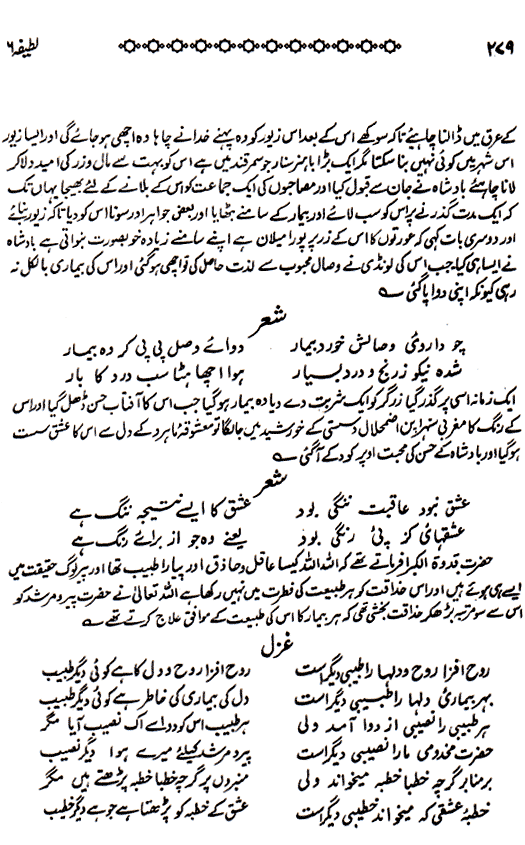 ۲۷۹ لطیفہ ۶
کے عرق میں ڈالنا چاہئے تاکہ سوکھے اس کے بعد اس زیور کو وہ پہنے خدا نے چاہا وہ اچھی ہو جائے گی اور ایسا زیور
اس شہر میں کوئی نہیں بنا سکتا مگر ایک بڑا باہنر سنار جو سمرقند میں ہے اس کو بہت سے مال و زر کی امید دلا کر
لانا چاہئے بادشاہ نے جان سے قبول کیا اور مصاحبوں کی ایک جماعت کو اس کے بلانے کے لئے بھیجا یہاں تک
کہ ایک مدت گذرنے پر اس کو سب لائے اور بیمار کے سامنے بٹھایا اور بعض جواہر اور سونا اس کو دیا تاکہ زیور بنائے
اور دوسری بات کہی کہ عورتوں کا اس کے زر پر پورا میلان ہے اپنے سامنے زیادہ خوبصورت بنواتی ہے بادشاہ
نے ایسا ہی کیا۔ جب اس کی لونڈی نے وصال محبوب سے لذت حاصل کی تو اچھی ہو گئی اور اس کی بیماری بالکل نہ
رہی کیونکہ اپنی دوا پا گئی
شعر
چو داروئی وصالش خورد بیمار دوائے وصل پی پی کر وہ بیمار
شدہ نیکو ز رنج و درد بسیار ہوا اچھا ہٹا سب درد کا بار
ایک زمانہ اسی پر گذر گیا زرگر کو ایک شربت دے دیا وہ بیمار ہو گیا جب اس کا آفتاب حسن ڈھل گیا اور اس
کے رنگ کا مغربی سنہرا پن اضمحلال و سستی کے خورشید میں جا لگا تو معشوقۂ ماہرو کے دل سے اس کا عشق سست
ہو گیا اور بادشاہ کے حسن کی محبت اوپر کود کے آ گئی
شعر
عشق نبود عاقبت ننگی بود عشق کا ایسے نتیجہ ننگ ہے
عشقہای کز پئی رنگی بود یعنے وہ جو از برائے رنگ ہے
حضرت قدوۃ الکبرا فرماتے تھے کہ اللہ اللہ کیسا عاقل و حاذق اور پیارا طبیب تھا اور ہر لوگ حقیقت میں
ایسے ہی ہوئے ہیں اور اس حذاقت کو ہر طبیعت کی فطرت میں نہیں رکھا ہے اللہ تعالیٰ نے حضرت پیر و مرشد کو
اس سے سو مرتبہ بڑھکر حذاقت بخشی تھی کہ ہر بیمار کا اس کی طبیعت کے موافق علاج کرتے تھے
غزل
روح افزا روح و دلہا را طبیبی دیگر است روح افزا روح و دل کا ہے کوئی دیگر طبیب
بہر بیماریٔ دلہا را طبیبی دیگر است دل کی بیماری کی خاطر ہے کوئی دیگر طبیب
ہر طبیبی را نصیبی از دوا آمد ولی ہر طبیب اس کو دوا سے اک نصیب آیا مگر
حضرت مخدومی ما را نصیبی دیگر است پیر و مرشد کیلئے میرے ہوا دیگر نصیب
بر منابر گرچہ خطبا خطبہ میخواند ولی منبروں پر گرچہ خطبا خطبہ پڑھتے ہیں مگر
خطبۂ عشقی کہ میخواند خطیبی دیگر است عشق کے خطبہ کو پڑھتا ہے جو ہے دیگر خطیب